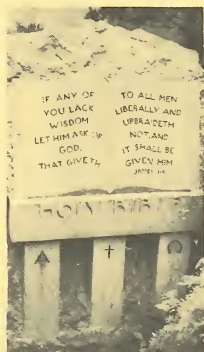 IF ANY OF
YOU LACK
WISDOM
LET HIM ASK OF
GOD,
THAT GIVETH
TO ALL MEN
LIBERALLY AND
UPBRAIDETH
NOT, AND
IT SHALL BE
GIVEN HIM
JAMES 1:5
HOLY BIBLE